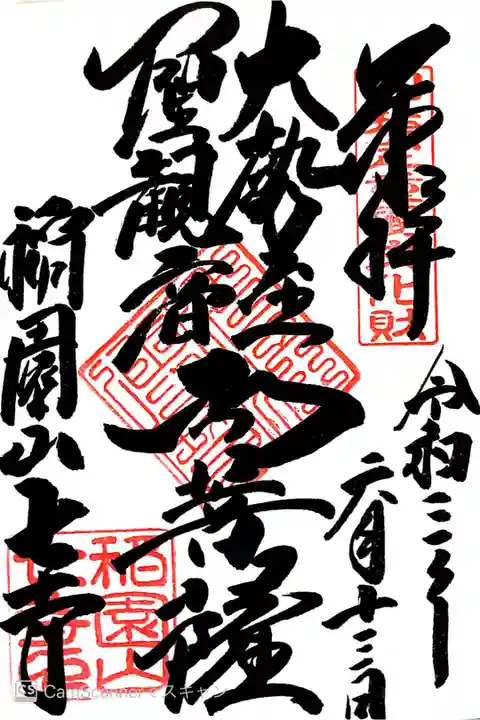 奉拝
令和三年
六月
大勢至
聖観音
両菩薩
稲園山七寺
稲園山
CS CamScannerでスキャン